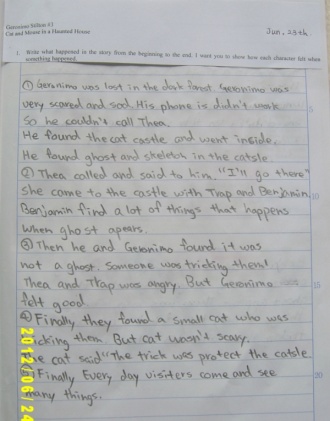 Geronimo Stilton #3
Cat and Mouse in a Haunted House
Jun, 23th
1. Write what happened in the story from the beginning to the end. I want you to show how each character felt when
something happened.
① Geronimo was lost in the dark forest. Geronimo was
very scared and sad. His phone is didn't work
So he couldn't call Thea.
He found the cat castle and went inside.
He found ghost and skeleton in the catsle.
② Thea called and said to him, "I'll go there"
She came to the castle with Trap and Benjamin.
Benjamin find a lot of things that happens
when ghost apears.
③ Then he and Geronimo found it was
not a ghost. Someone was tricking them!
Thea and Trap was angry. But Geronimo
felt good.
④ Finally they found a small cat who was
tricking them. But cat wasn't scary.
The cat said "The trick was protect the catsle.
⑤ Finally Every day visiters come and see
many things.
5
10
15
20
2012/06/24